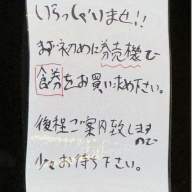 いらっしゃいませ!!
お初めに券売機で
食券をお買い求め下さい。
後程ご案内致しますので
少々お待ち下さい。